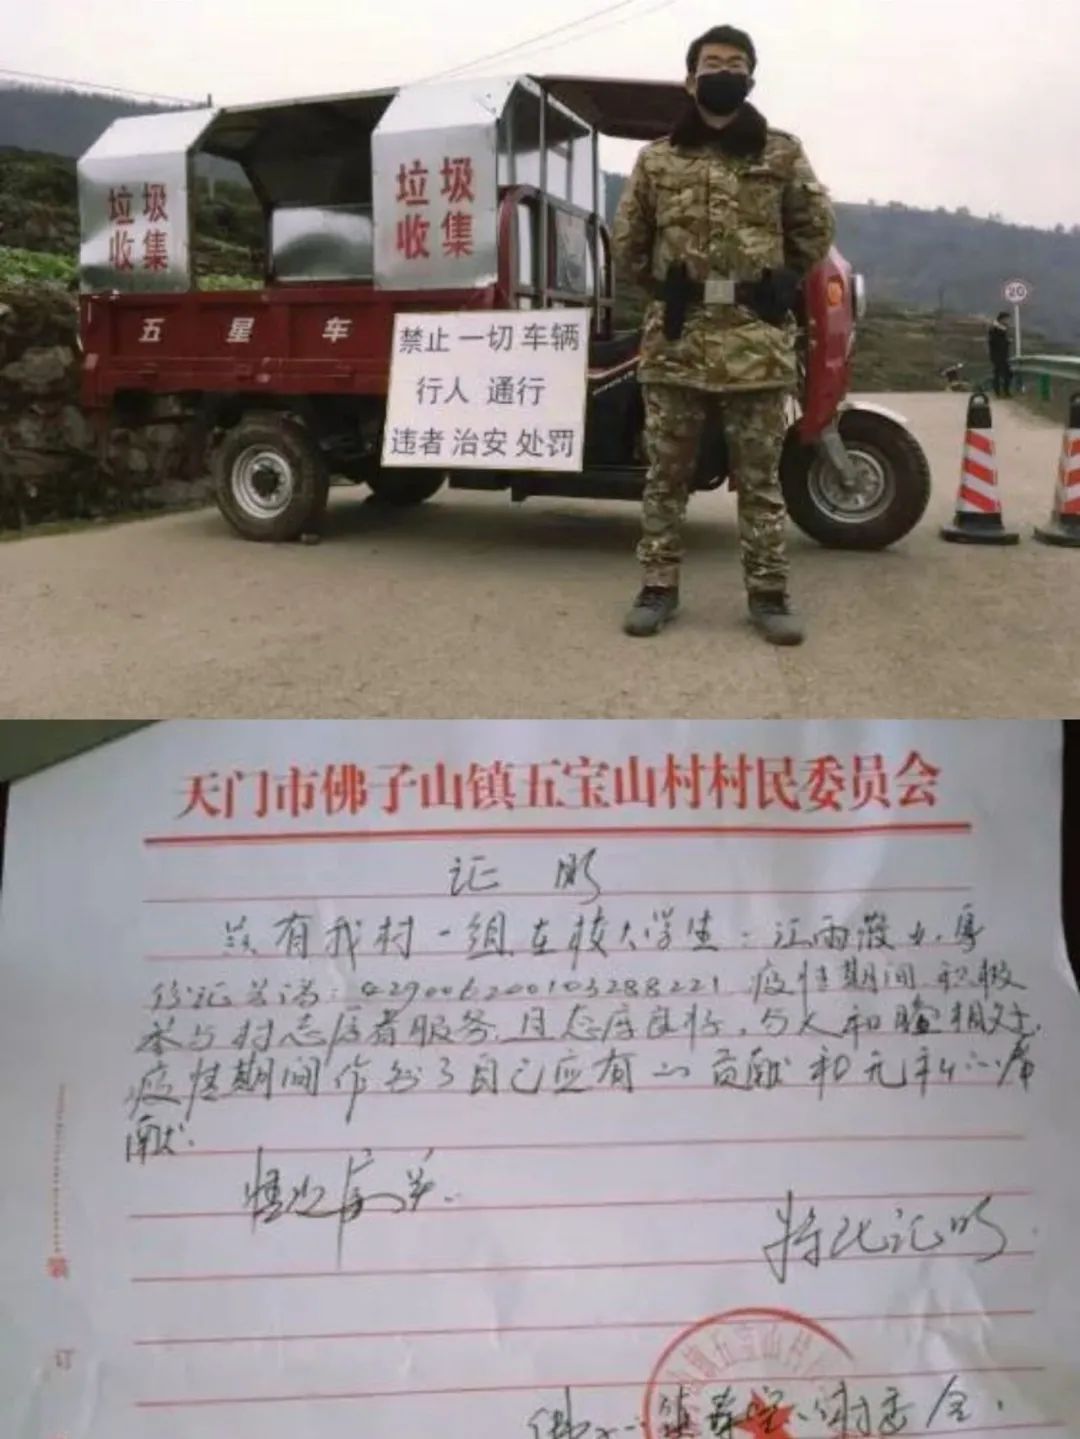 垃圾
收集
垃圾
收集
五星车
禁止一切车辆
行人 通行
违者治安处罚
20
天门市佛子山镇五宝山村村民委员会
证明
兹有我村一组在校大学生:江雨
疫情期间积极
参与村志愿者服务,且态度良好,与人和睦相处,
疫情期间作出了自己应有的贡献和无私的奉
献.
情况属实.
特此证明
镇五宝山村
村委会.
装
订